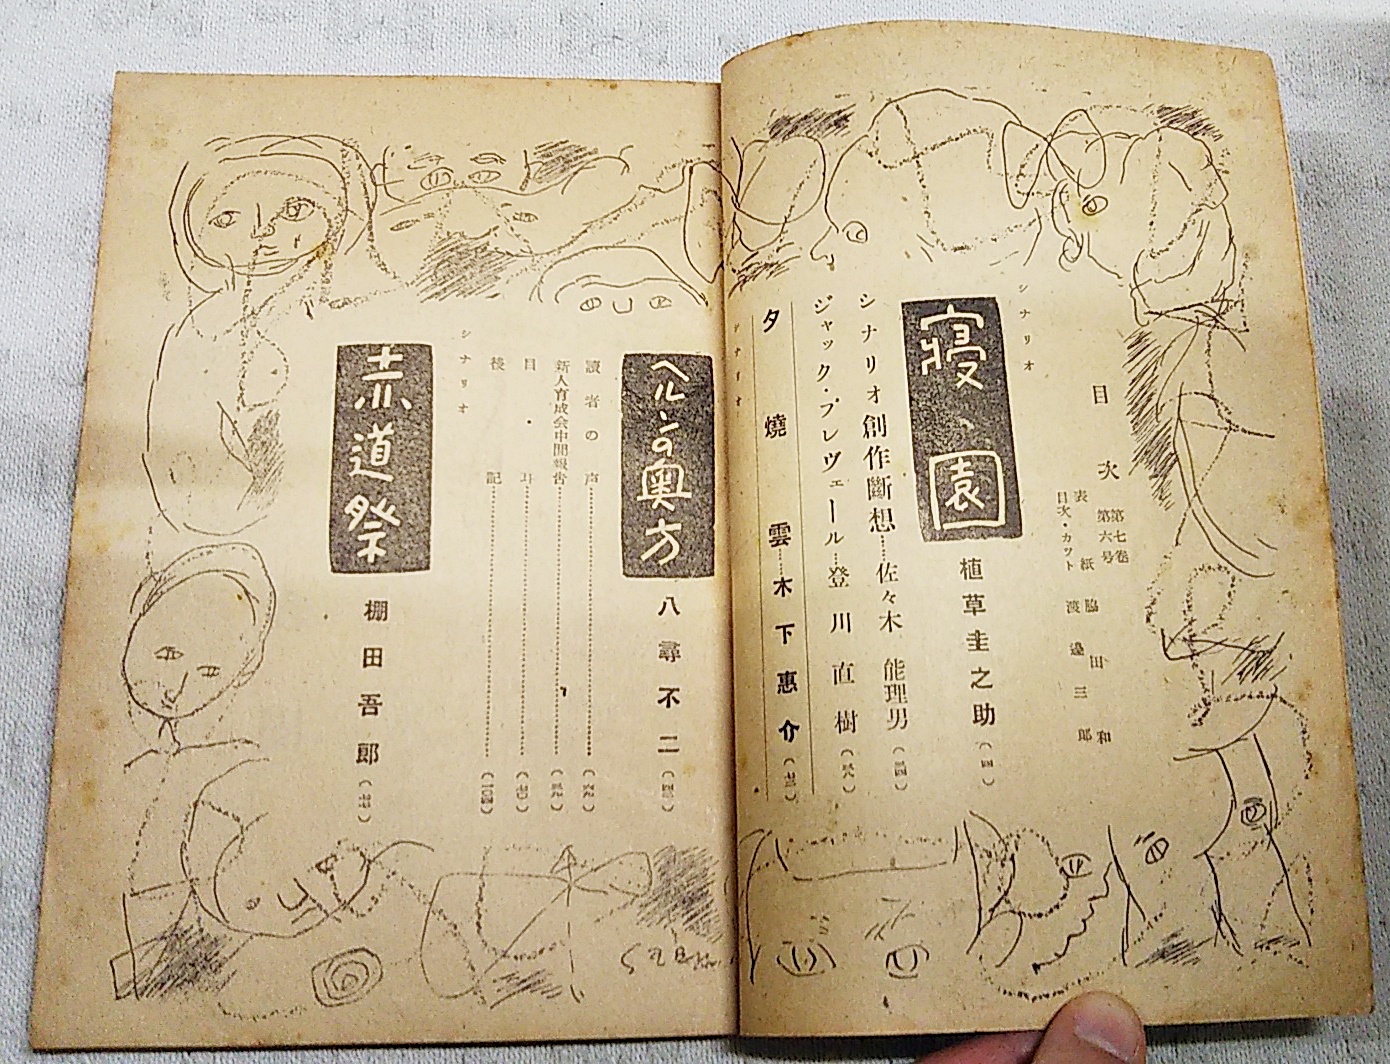 目次
第七卷
第六号
表紙 脇田和
目次・カット 渡邉三郎
シナリオ
寝園 植草圭之助
シナリオ創作斷想……佐々木能理男
ジャック・プレヴェール…登川直樹
夕燒雲……木下惠介
シナリオ
ヘルンの奥方 八尋不二
讀者の声
新人育成会中間報告
後記
シナリオ
赤道祭 棚田吾郎